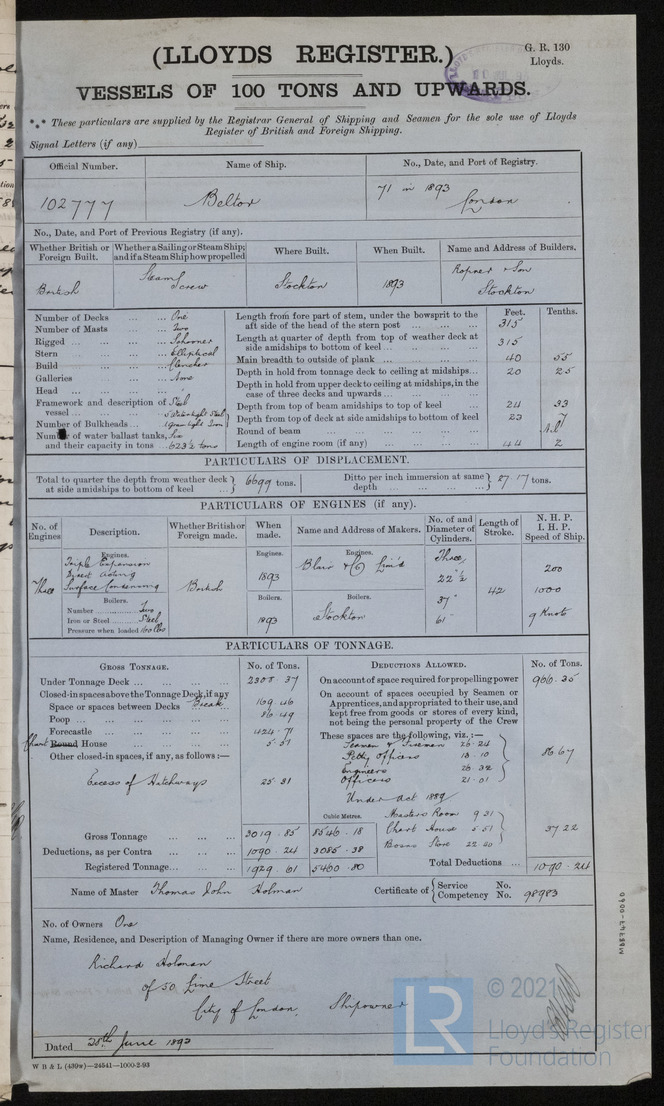 (LLOYDS REGISTER.)
G. R. 130
Lloyds.
VESSELS OF 100 TONS AND UPWARDS.
*** These particulars are supplied by the Registrar General of Shipping and Seamen for the sole use of Lloyds
Register of British and Foreign Shipping.
Signal Letters (if any)
Official Number. Name of Ship. No., Date, and Port of Registry.
102777 Beltor 71 in 1893 London
No., Date, and Port of Previous Registry (if any).
Whether British or Foreign Built. Whether a Sailing or Steam Ship; and if a Steam Ship how propelled Where Built. When Built. Name and Address of Builders.
British Steam Screw Stockton 1893 Ropner & Son Stockton
Number of Decks ... ... One
Number of Masts ... ... Two
Rigged ... ... ... Schooner
Stern ... ... ... Elliptical
Build ... ... ... Clencher
Galleries ... ... ... None
Head ... ... ...
Framework and description of vessel ... ... ... Steel
Number of Bulkheads ...
Number of water ballast tanks, Six
and their capacity in tons ... 623½ tons
Feet. Tenths.
Length from fore part of stem, under the bowsprit to the aft side of the head of the stern post ... ... ... 315
Length at quarter of depth from top of weather deck at side amidships to bottom of keel ... ... ... 315
Main breadth to outside of plank ... ... ... 40 55
Depth in hold from tonnage deck to ceiling at midships... 20 25
Depth in hold from upper deck to ceiling at midships, in the case of three decks and upwards ... ... ...
Depth from top of beam amidships to top of keel ... 24 33
Depth from top of deck at side amidships to bottom of keel 23 7
Round of beam ... ... ...
Length of engine room (if any) ... ... ... 44 2
PARTICULARS OF DISPLACEMENT.
Total to quarter the depth from weather deck at side amidships to bottom of keel ... 6699 tons. Ditto per inch immersion at same depth ... ... ... 27.17 tons.
PARTICULARS OF ENGINES (if any).
No. of Engines Description. Whether British or Foreign made. When made. Name and Address of Makers. No. of and Diameter of Cylinders. Length of Stroke. N. H. P. I. H. P. Speed of Ship.
Engines. Engines. Engines.
Three Triple Expansion Direct Acting Surface Condensing British 1893 Blair & Co Lim'd Three, 22½ 37" 61" 42 200 1000 9 Knots
Boilers. Boilers. Boilers.
Number ... Two
Iron or Steel ... Steel 1893 Stockton
Pressure when loaded 160 lbs
PARTICULARS OF TONNAGE.
GROSS TONNAGE. No. of Tons. DEDUCTIONS ALLOWED. No. of Tons.
Under Tonnage Deck ... ... ... 2308 37
Closed-in spaces above the Tonnage Deck, if any
Space or spaces between Decks Break 169.46
Poop ... ... ... 86.49
Forecastle ... ... ... 424.71
Chart Round House ... ... ... 5.51
Other closed-in spaces, if any, as follows:—
Excess of Hatchways 25.31
On account of space required for propelling power 966.35
On account of spaces occupied by Seamen or Apprentices, and appropriated to their use, and kept free from goods or stores of every kind, not being the personal property of the Crew
These spaces are the following, viz.:—
Seamen & Firemen 26.24
Petty Officers 13.10
Engineers 26.32
Officers 21.01
86 67
Under Act 1889
Masters Room 9 31
Chart House 5.51
Bosns Store 22.40
37 22
Cubic Metres.
Gross Tonnage ... ... ... 3019.85 8546.18
Deductions, as per Contra ... ... ... 1090.24 3085.38
Registered Tonnage... ... ... 1929.61 5460.80
Total Deductions ... 1090.24
Name of Master Thomas John Holman Certificate of { Service No. Competency No. 98983
No. of Owners One
Name, Residence, and Description of Managing Owner if there are more owners than one.
Richard Holman
of 50 Lime Street
City of London, Shipowner
Dated 28th June 1893
W B & L (439w)—24541—1000-2-93
© 2021
LR
Lloyd's Register
Foundation